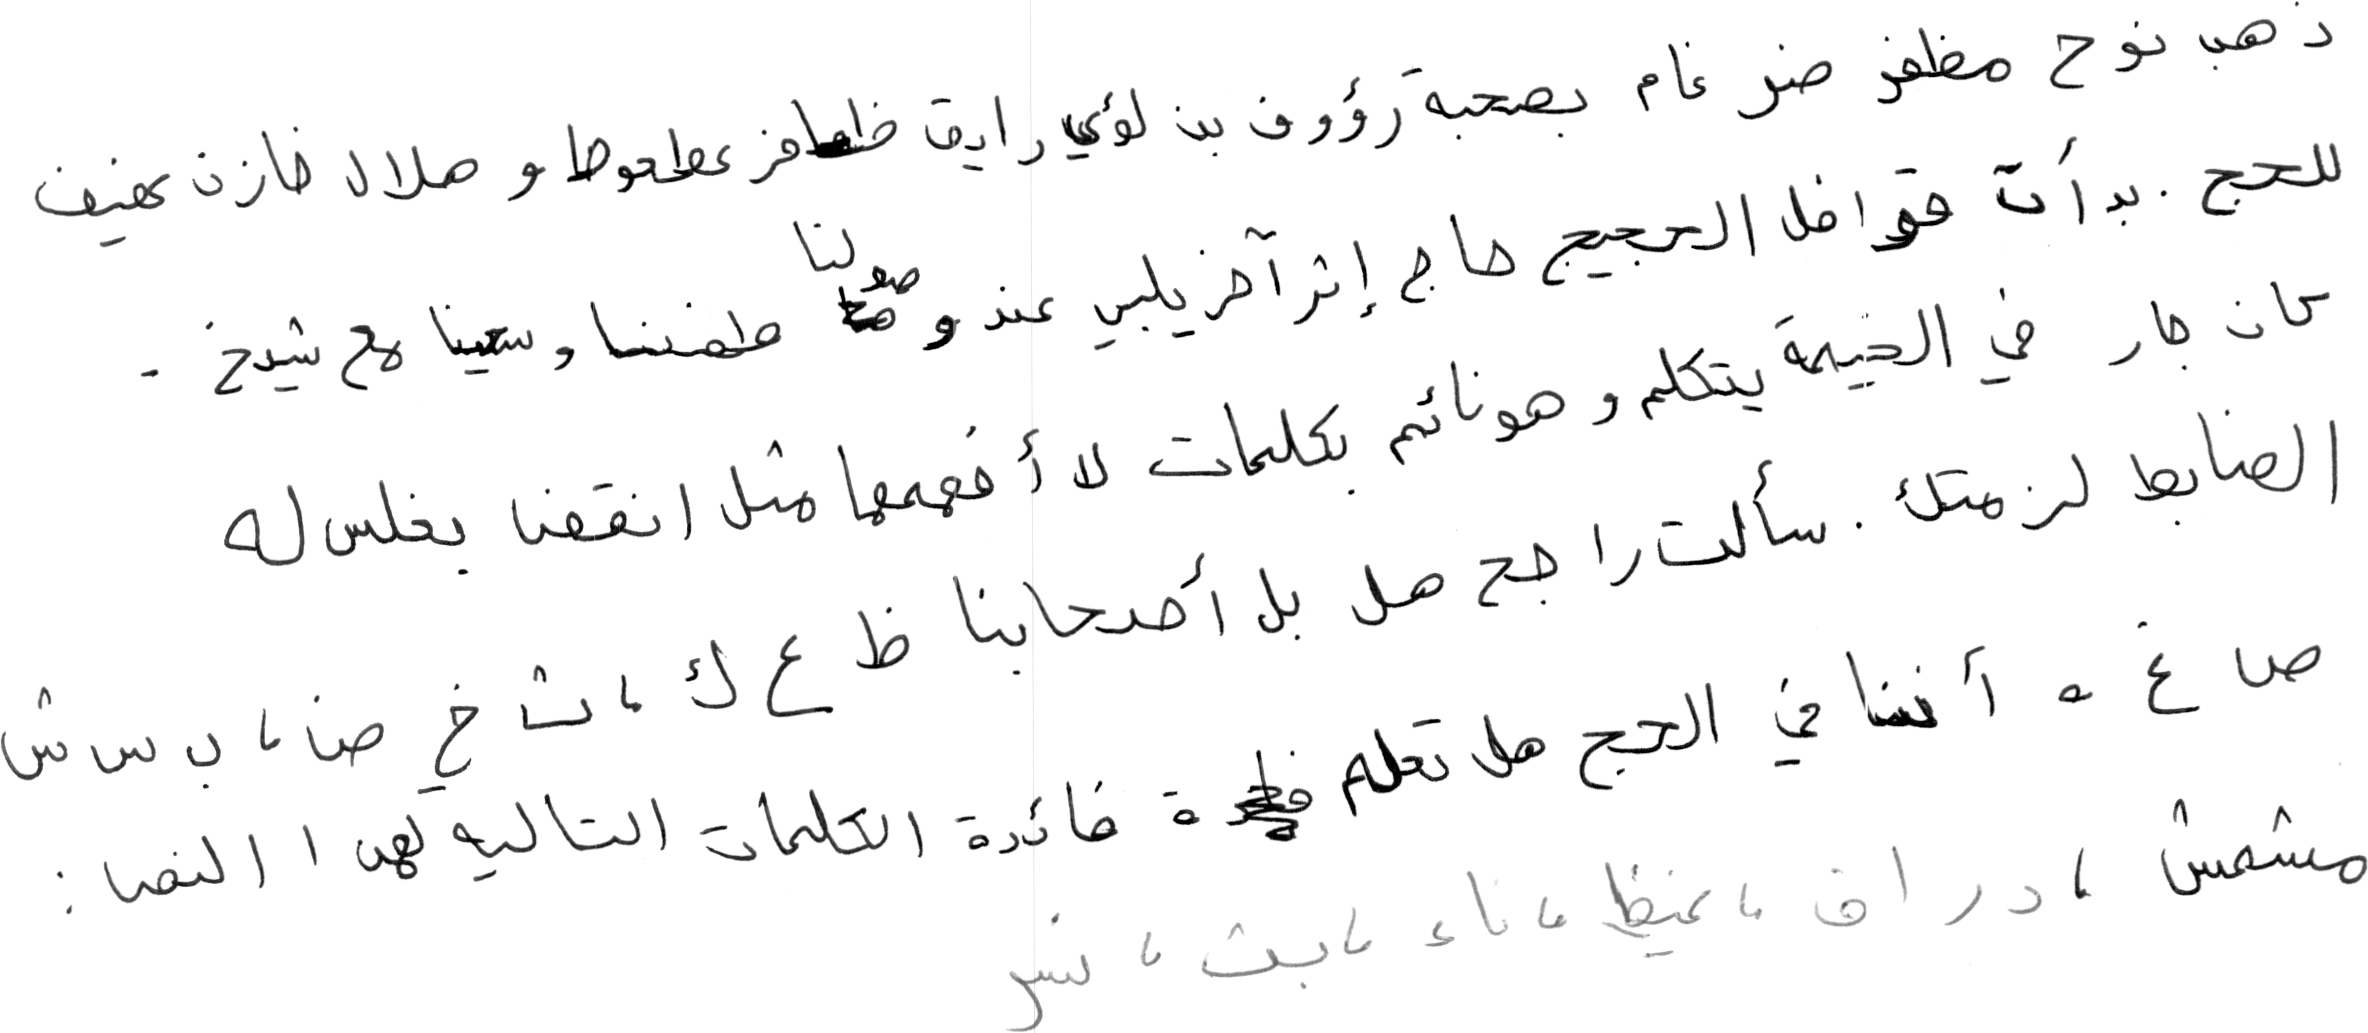 ذهب نوح مظفر ضرغام بصحبة رؤوف بن لؤي رايق ظافر عطعوط و هلال خازن عفيف
للحج . بدأت قوافل الحجيج حاج إثر آخر يلبي عند وصولنا طفنا وسعينا مع شيخ .
كان جار في الخيمة يتكلم و هو نائم بكلمات لا أفهمها مثل انقضنا بغلس له
الضابط لزمتك . سألت راجح هل بل أصحابنا ظ ع ك ، ث خ ض ، ب س ش
ص غ ه أننا في الحج هل تعلم فائدة الكلمات التالية لهذا النص :
مشمش ، دراق ، غيظ ، ناء ، بث ، نشر